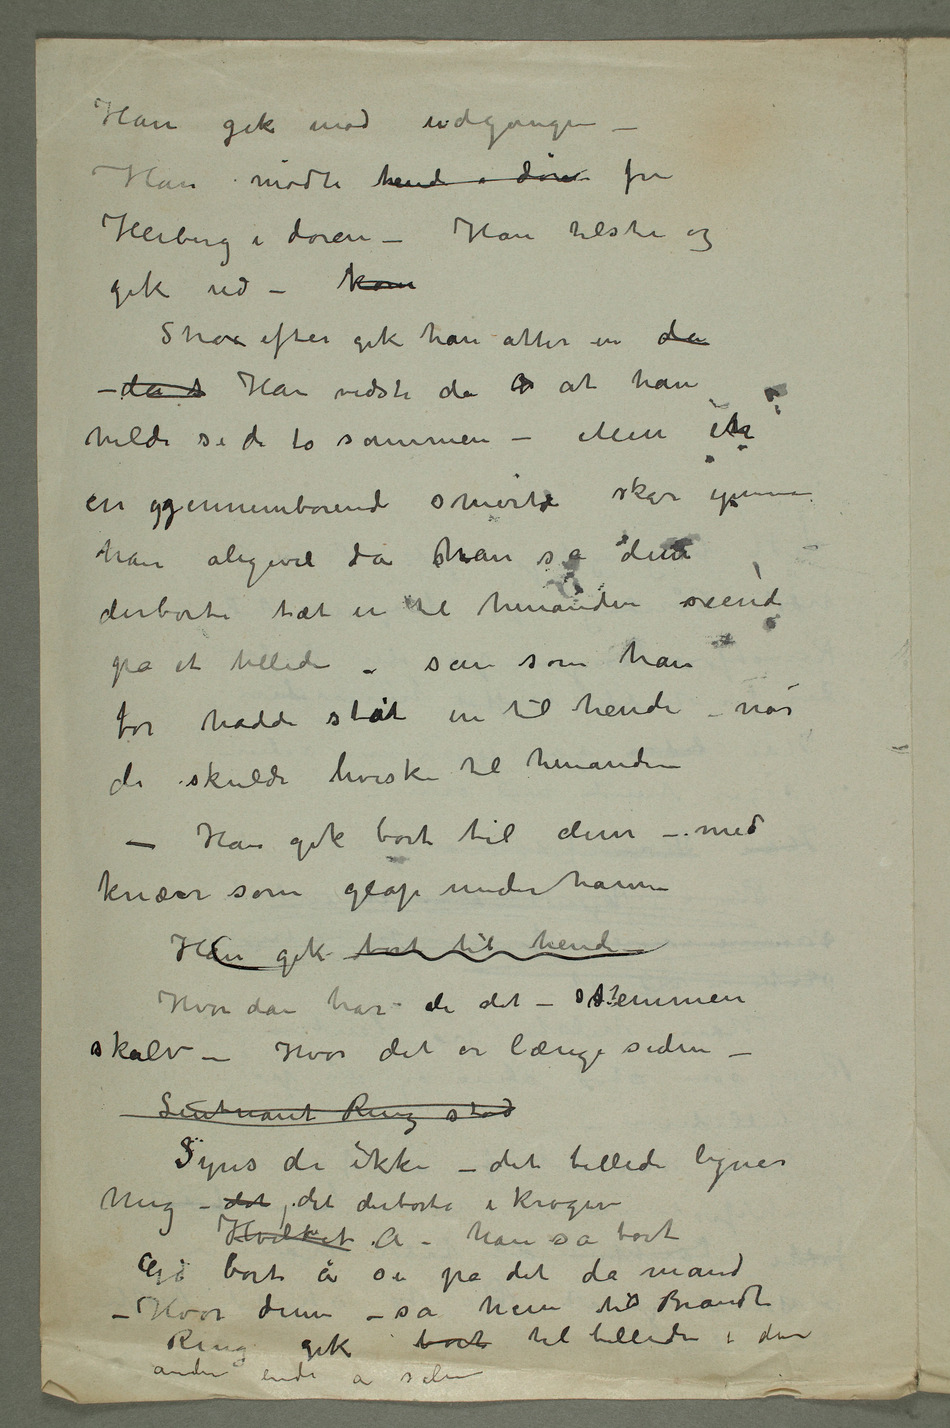 Han gik mod udgangen –
Han mødte hende i døren fru
Heiberg i døren – Han hilste og
gik ud – kom
Strax efter gik han atter in da
– da d Han vidste da at han
vilde se de to sammen – Men
en gjennemborende smerte skar gjennem
han aligevel da han så dem
derborte tæt in til hinanden seende
på et billede – sån som han
før hadde ståt in til hende – når
de skulde hviske til hinanden
– Han gik bort til dem – med
knæer som glap under hanne
Han gik bort til hende
Hvordan har de det – stemmen
skalv – Hvor det er længe siden –
Leutnant Ring stod
Syns de ikke – det billede ligner
mig – det, det derborte i krogen
Hvilket A – han så bort
Gå bort å se på det da mand
– Hvor denne – sa hen til Brandt
Ring gik bort til billedet i den
anden ende a salen